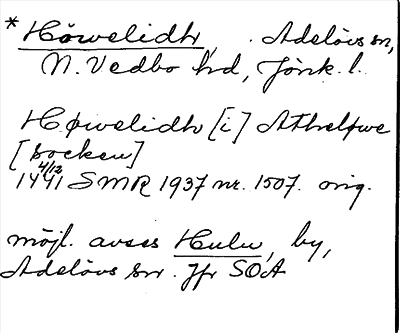 *Höwelidh, . Adelövs sn,
N. Vedbo hd, Jönk. l.
Høwelidh [i] Athreløwe
[socken]
4/12
1441 SMR 1937 nr. 1507. orig.
möjl. avses Hulu, by,
Adelövs sn. Jfr SOÄ